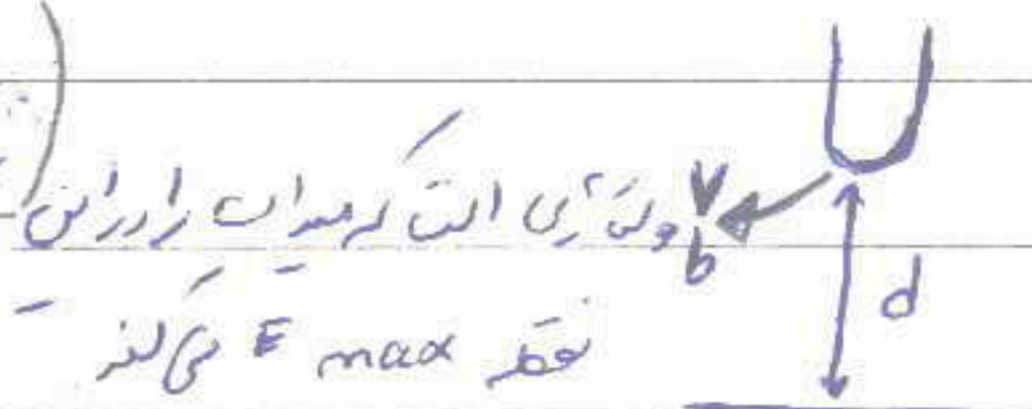 V
b ولتاژی است که میدان را در این
نقطه E max می‌کند
d